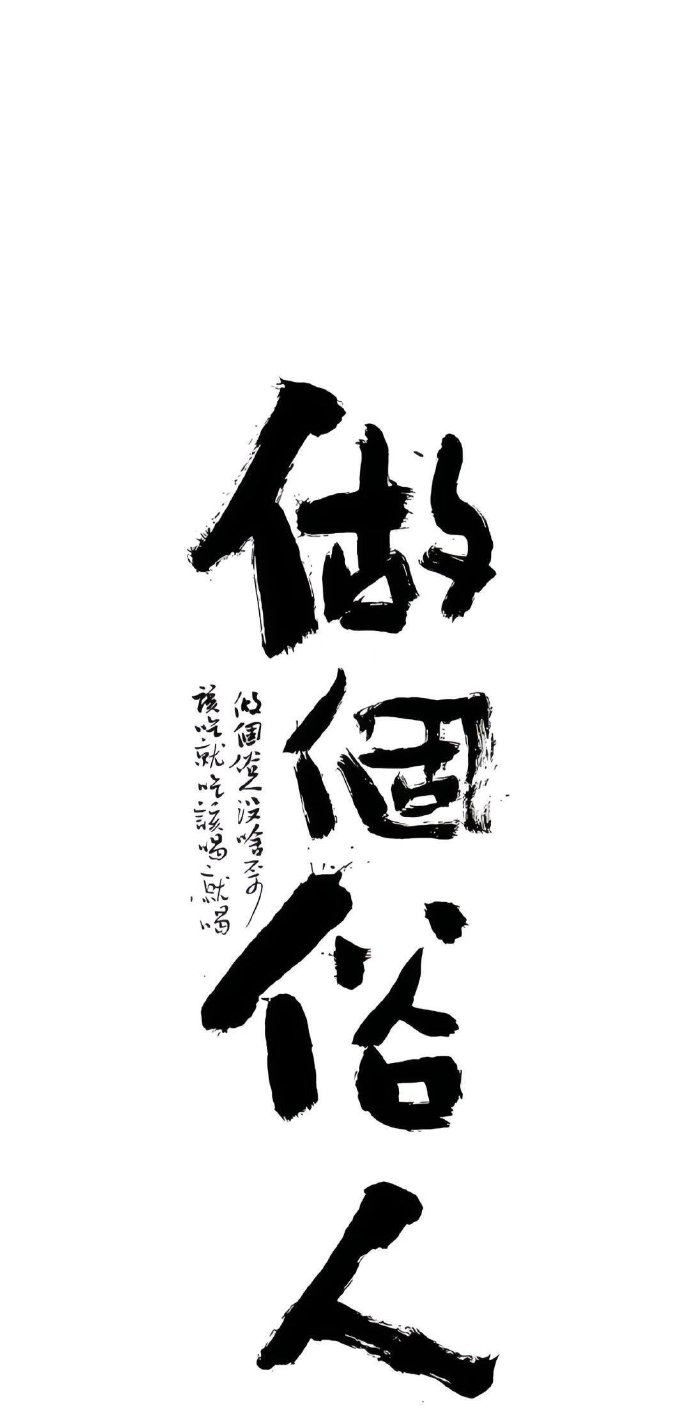 做個俗人
做個俗人没啥不可
該吃就吃該喝就喝